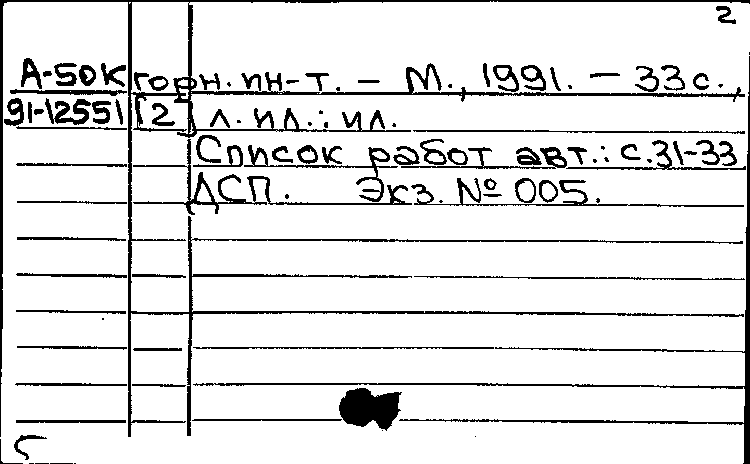 2
А-50К горн. ин-т. – М., 1991. – 33 с.,
91-12551 [2] л. ил.: ил.
Список работ авт.: с.31-33
ДСП. Экз. № 005.